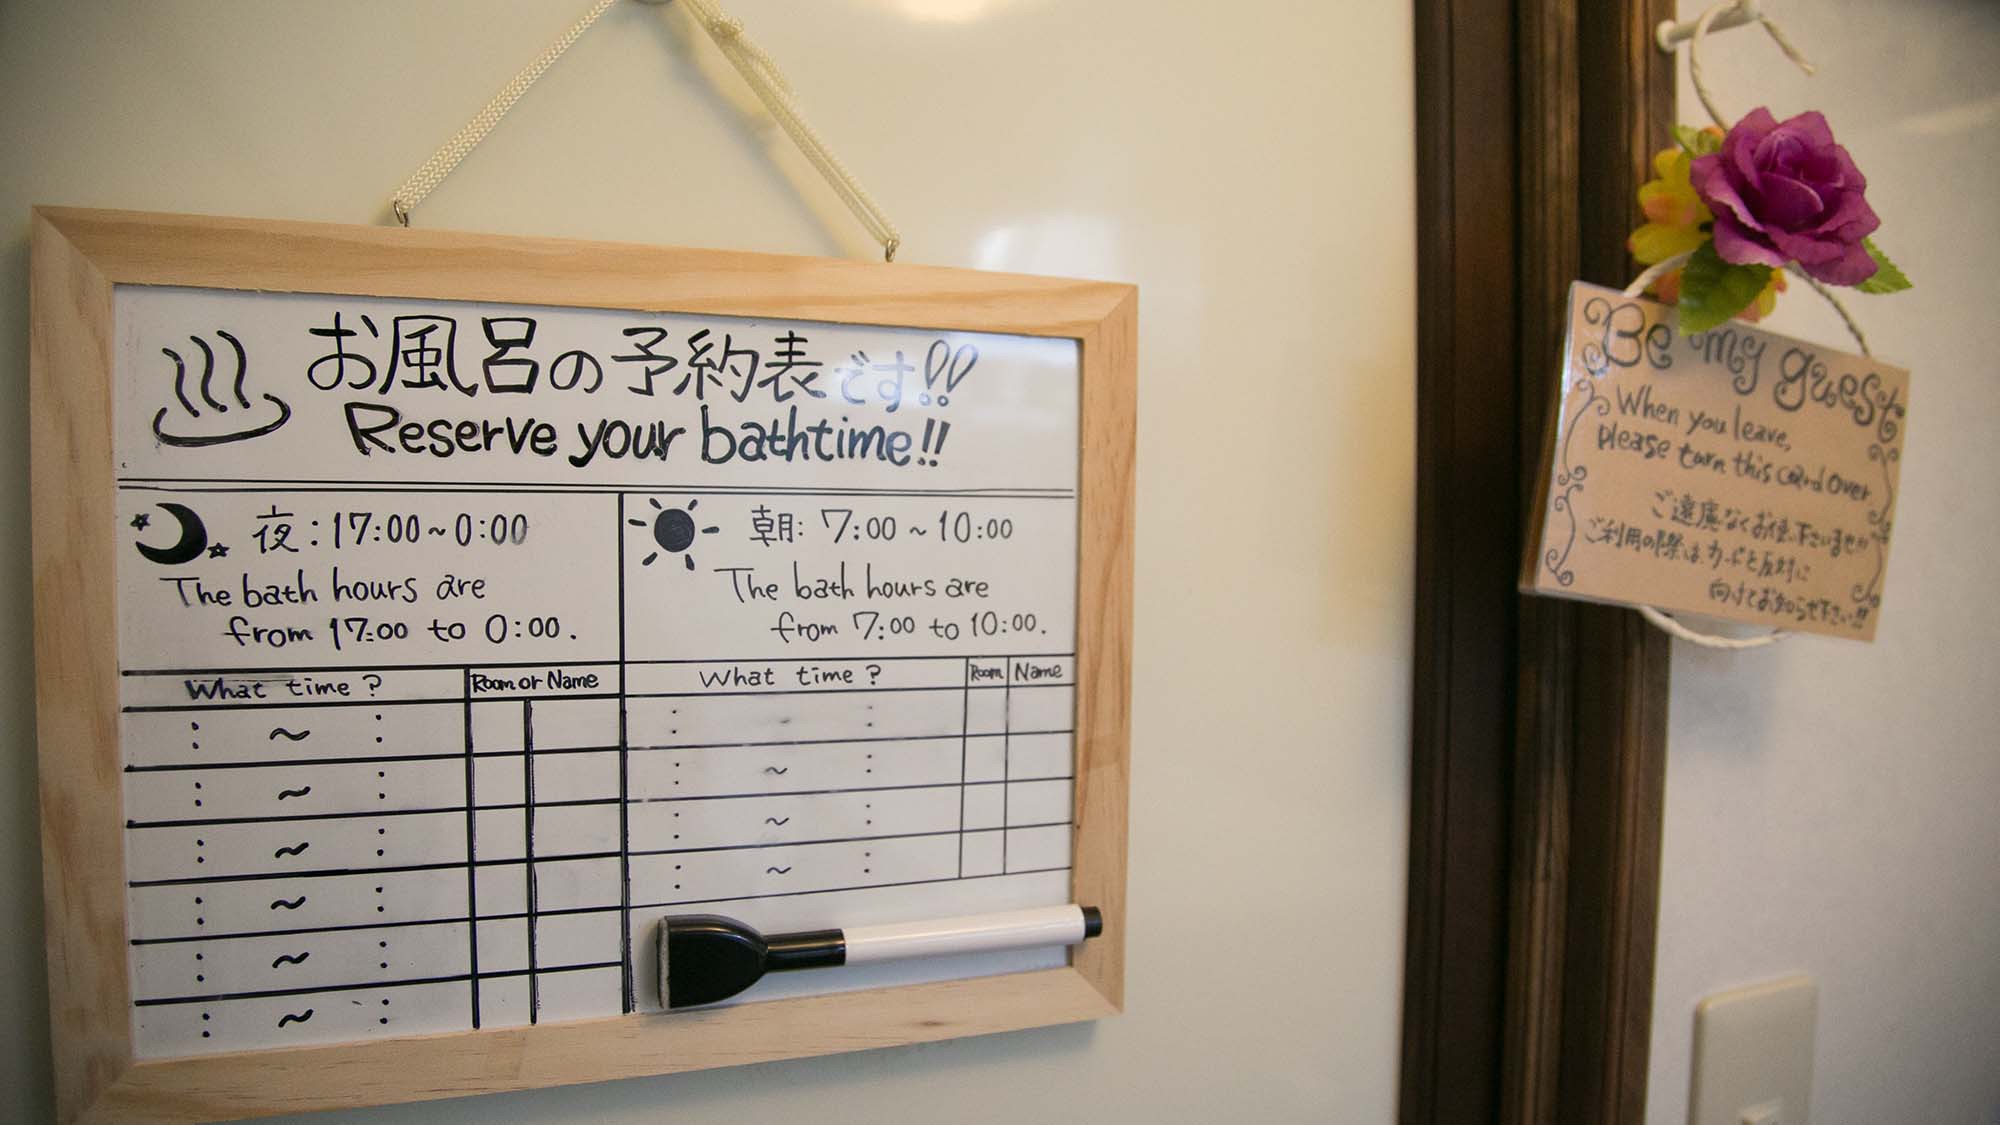 お風呂の予約表です!!
Reserve your bathtime!!
夜:17:00~0:00
The bath hours are
from 17:00 to 0:00.
What time? Room or Name
: ~ :
: ~ :
: ~ :
: ~ :
: ~ :
: ~ :
朝: 7:00 ~ 10:00
The bath hours are
from 7:00 to 10:00.
What time? Room Name
: ~ :
: ~ :
: ~ :
: ~ :
Be my guest
When you leave,
please turn this card over
ご遠慮なくお使い下さいませ!!
ご利用の際は、カードを反対に
向けてお知らせ下さい!!